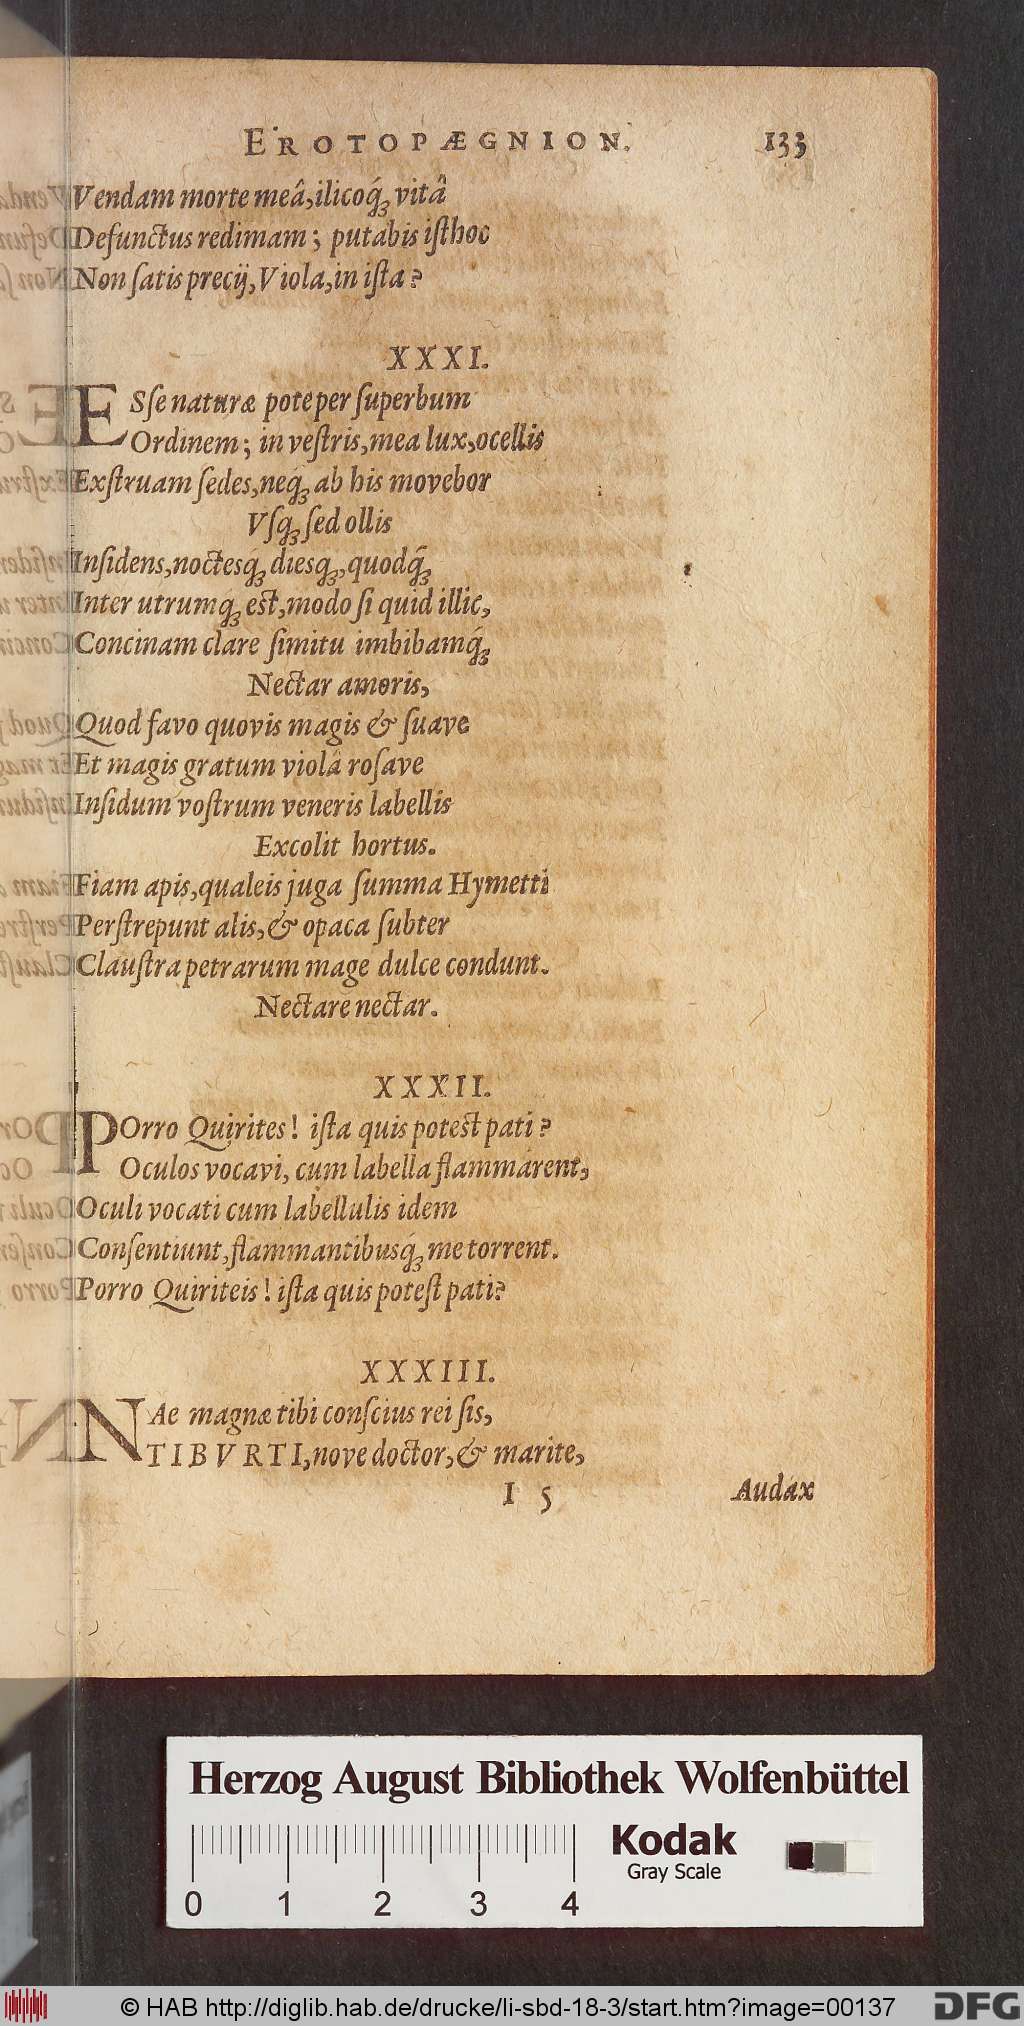 EROTOPÆGNION. 133
Vendam morte meâ, ilicoq́ꝫ vitâ
Defunctus redimam; putabis isthoc
Non satis precij, Viola, in ista?
XXXI.
ESſe naturæ pote per ſuperbum
Ordinem; in veſtris, mea lux, ocellis
Exſtruam ſedes, neq́ꝫ ab his movebor
Vſqꝫ ſed ollis
Inſidens, noctesq́ꝫ diesqꝫ, quodq̃ꝫ
Inter utrumqꝫ eſt, modo ſi quid illic,
Concinam clare ſimitu imbibamq́ꝫ
Nectar amoris,
Quod favo quovis magis & ſuave
Et magis gratum violâ roſave
Inſidum voſtrum veneris labellis
Excolit hortus.
Fiam apis, qualeis juga ſumma Hymetti
Perſtrepunt alis, & opaca ſubter
Clauſtra petrarum mage dulce condunt.
Nectare nectar.
XXXII.
POrro Quirites! iſta quis poteſt pati?
Oculos vocavi, cum labella flammarent,
Oculi vocati cum labellulis idem
Conſentiunt, flammantibusq́ꝫ me torrent.
Porro Quiriteis! iſta quis poteſt pati?
XXXIII.
NAe magnæ tibi conſcius rei ſis,
TIBVRTI, nove doctor, & marite,
I 5 Audax
Herzog August Bibliothek Wolfenbüttel
Kodak
Gray Scale
0 1 2 3 4
© HAB http://diglib.hab.de/drucke/li-sbd-18-3/start.htm?image=00137
DFG